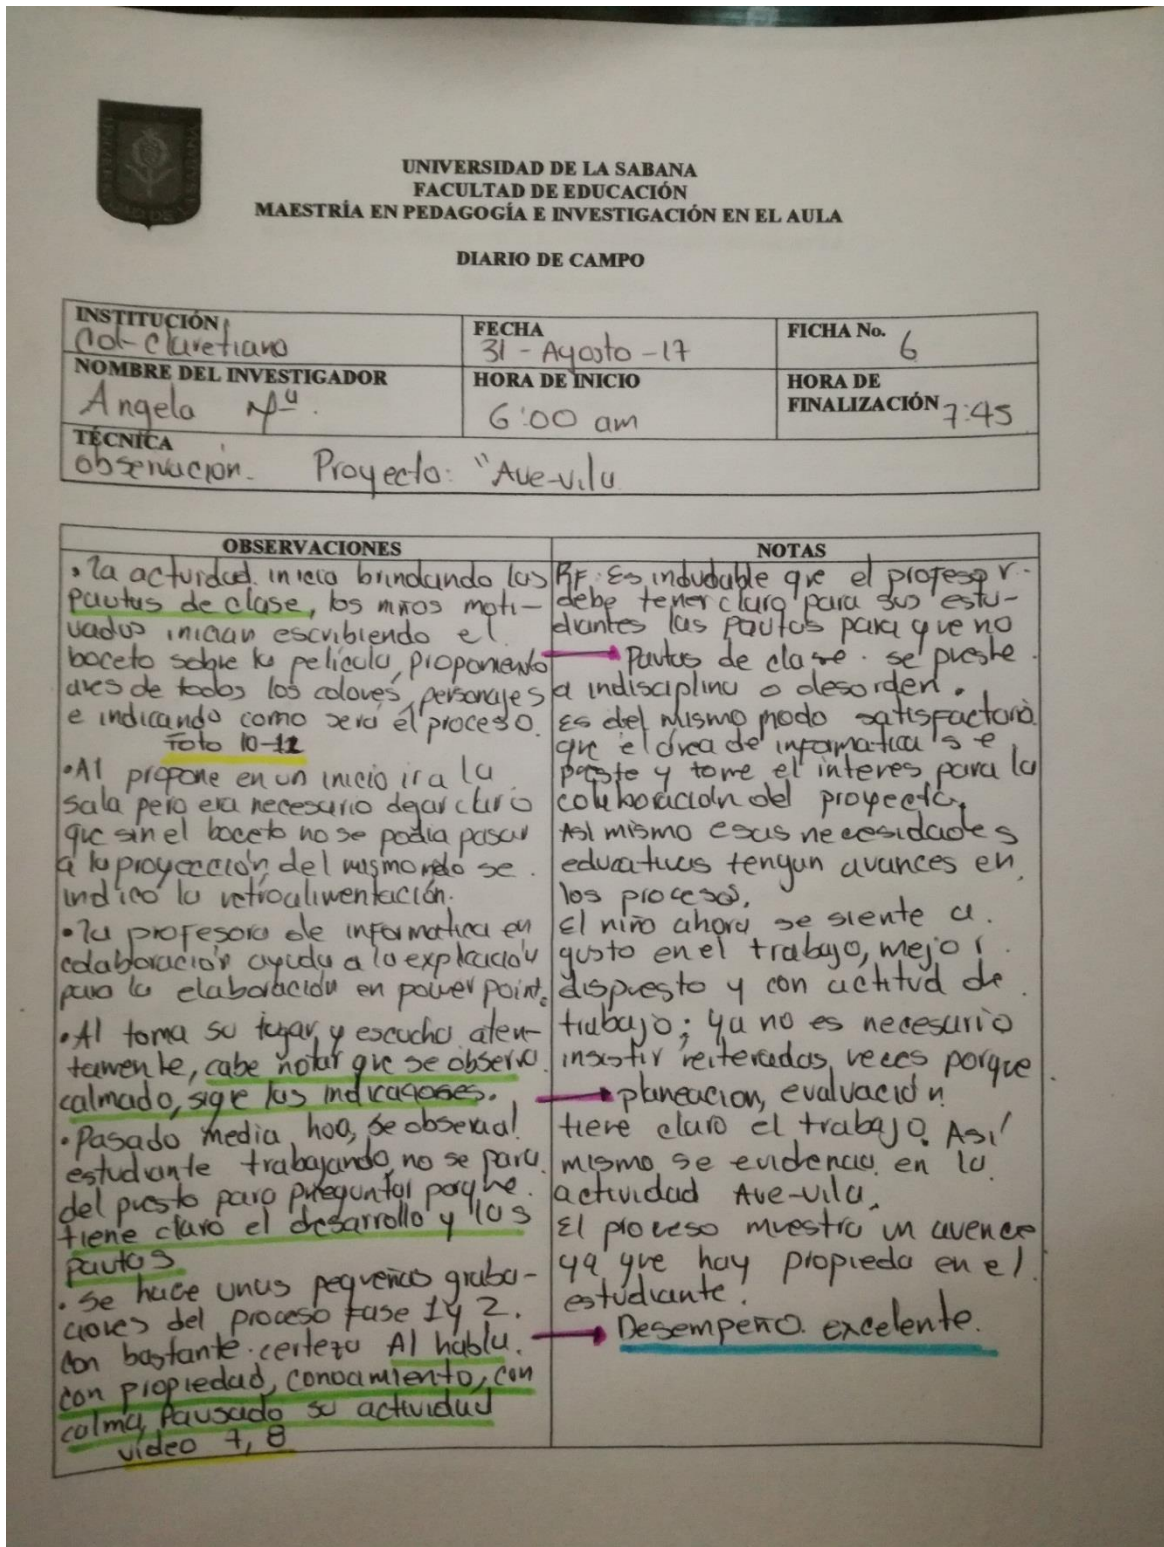 UNIVERSIDAD DE LA SABANA
FACULTAD DE EDUCACIÓN
MAESTRÍA EN PEDAGOGÍA E INVESTIGACIÓN EN EL AULA
DIARIO DE CAMPO
INSTITUCIÓN
Col- Claretiano
FECHA
31 - Agosto -17
FICHA No.
6
NOMBRE DEL INVESTIGADOR
Angela
HORA DE INICIO
6:00 am
HORA DE
FINALIZACIÓN 7:45
TÉCNICA
observación. Proyecto: "Ave-vilu
OBSERVACIONES
• la actividad inicia brindando las
pautas de clase, los niños moti-
vados inician escribiendo el
boceto sobre la película, proponiendo
aves de todos los colores, personajes
e indicando como será el proceso.
Foto 10-12
• Al propone en un inicio ir a la
sala pero era necesario dejar claro
que sin el boceto no se podia pasar
a la proyección, del mismo se
indicó la retroalimentación.
• la profesora de informatica en
colaboración ayuda a la explicación
para la elaboración en power point.
• Al toma su lugar y escucha aten-
tamente, cabe notar que se observa
calmado, sigue las indicaciones.
• Pasado media hora, se observa al
estudiante trabajando, no se para
del puesto para preguntar porque
tiene claro el desarrollo y las
pautas
• se hace unas pequeñas graba-
ciones del proceso Fase 1 y 2.
Con bastante certeza Al habla
con propiedad, conocimiento, con
calma, pausado su actividad
video 7, 8
NOTAS
RF: Es indudable que el profesor
debe tener claro para sus estu-
diantes las pautas para que no
Pautas de clase. se preste
a indisciplina o desorden.
Es del mismo modo satisfactorio
que el área de informatica se
preste y tome el interes para la
colaboración del proyecto.
Así mismo esas necesidades
educativas tengan avances en
los procesos.
El niño ahora se siente a
gusto en el trabajo, mejor
dispuesto y con actitud de
trabajo; ya no es necesario
insistir reiteradas veces porque
planeacion, evaluación
tiene claro el trabajo. Así
mismo se evidencia en la
actividad Ave-vilu.
El proceso muestra un avence
ya que hay propieda en el
estudiante.
Desempeño excelente.